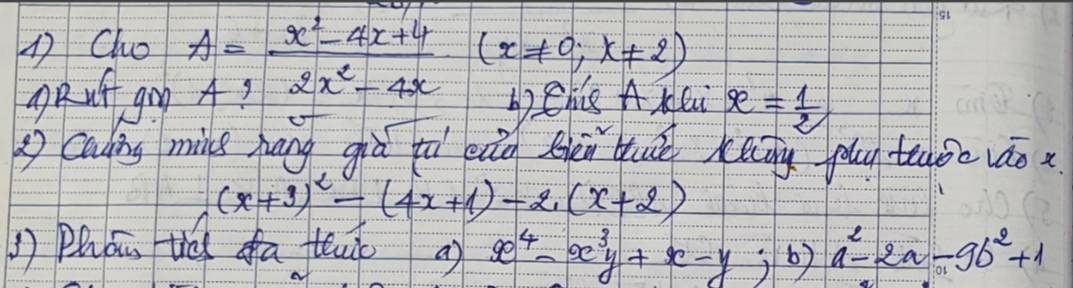 1) Cho A = (x² - 4x + 4)/(2x² - 4x) (x ≠ 0; x ≠ 2)
a) Rút gọn A? b) Tính A khi x = 1/2
2) Chứng minh rằng giá trị của biểu thức không phụ thuộc vào x.
(x+3)² - (4x+1) - 2.(x+2)
3) Phân tích đa thức a) x⁴ - x³y + x - y ; b) a² - 2a - 9b² + 1